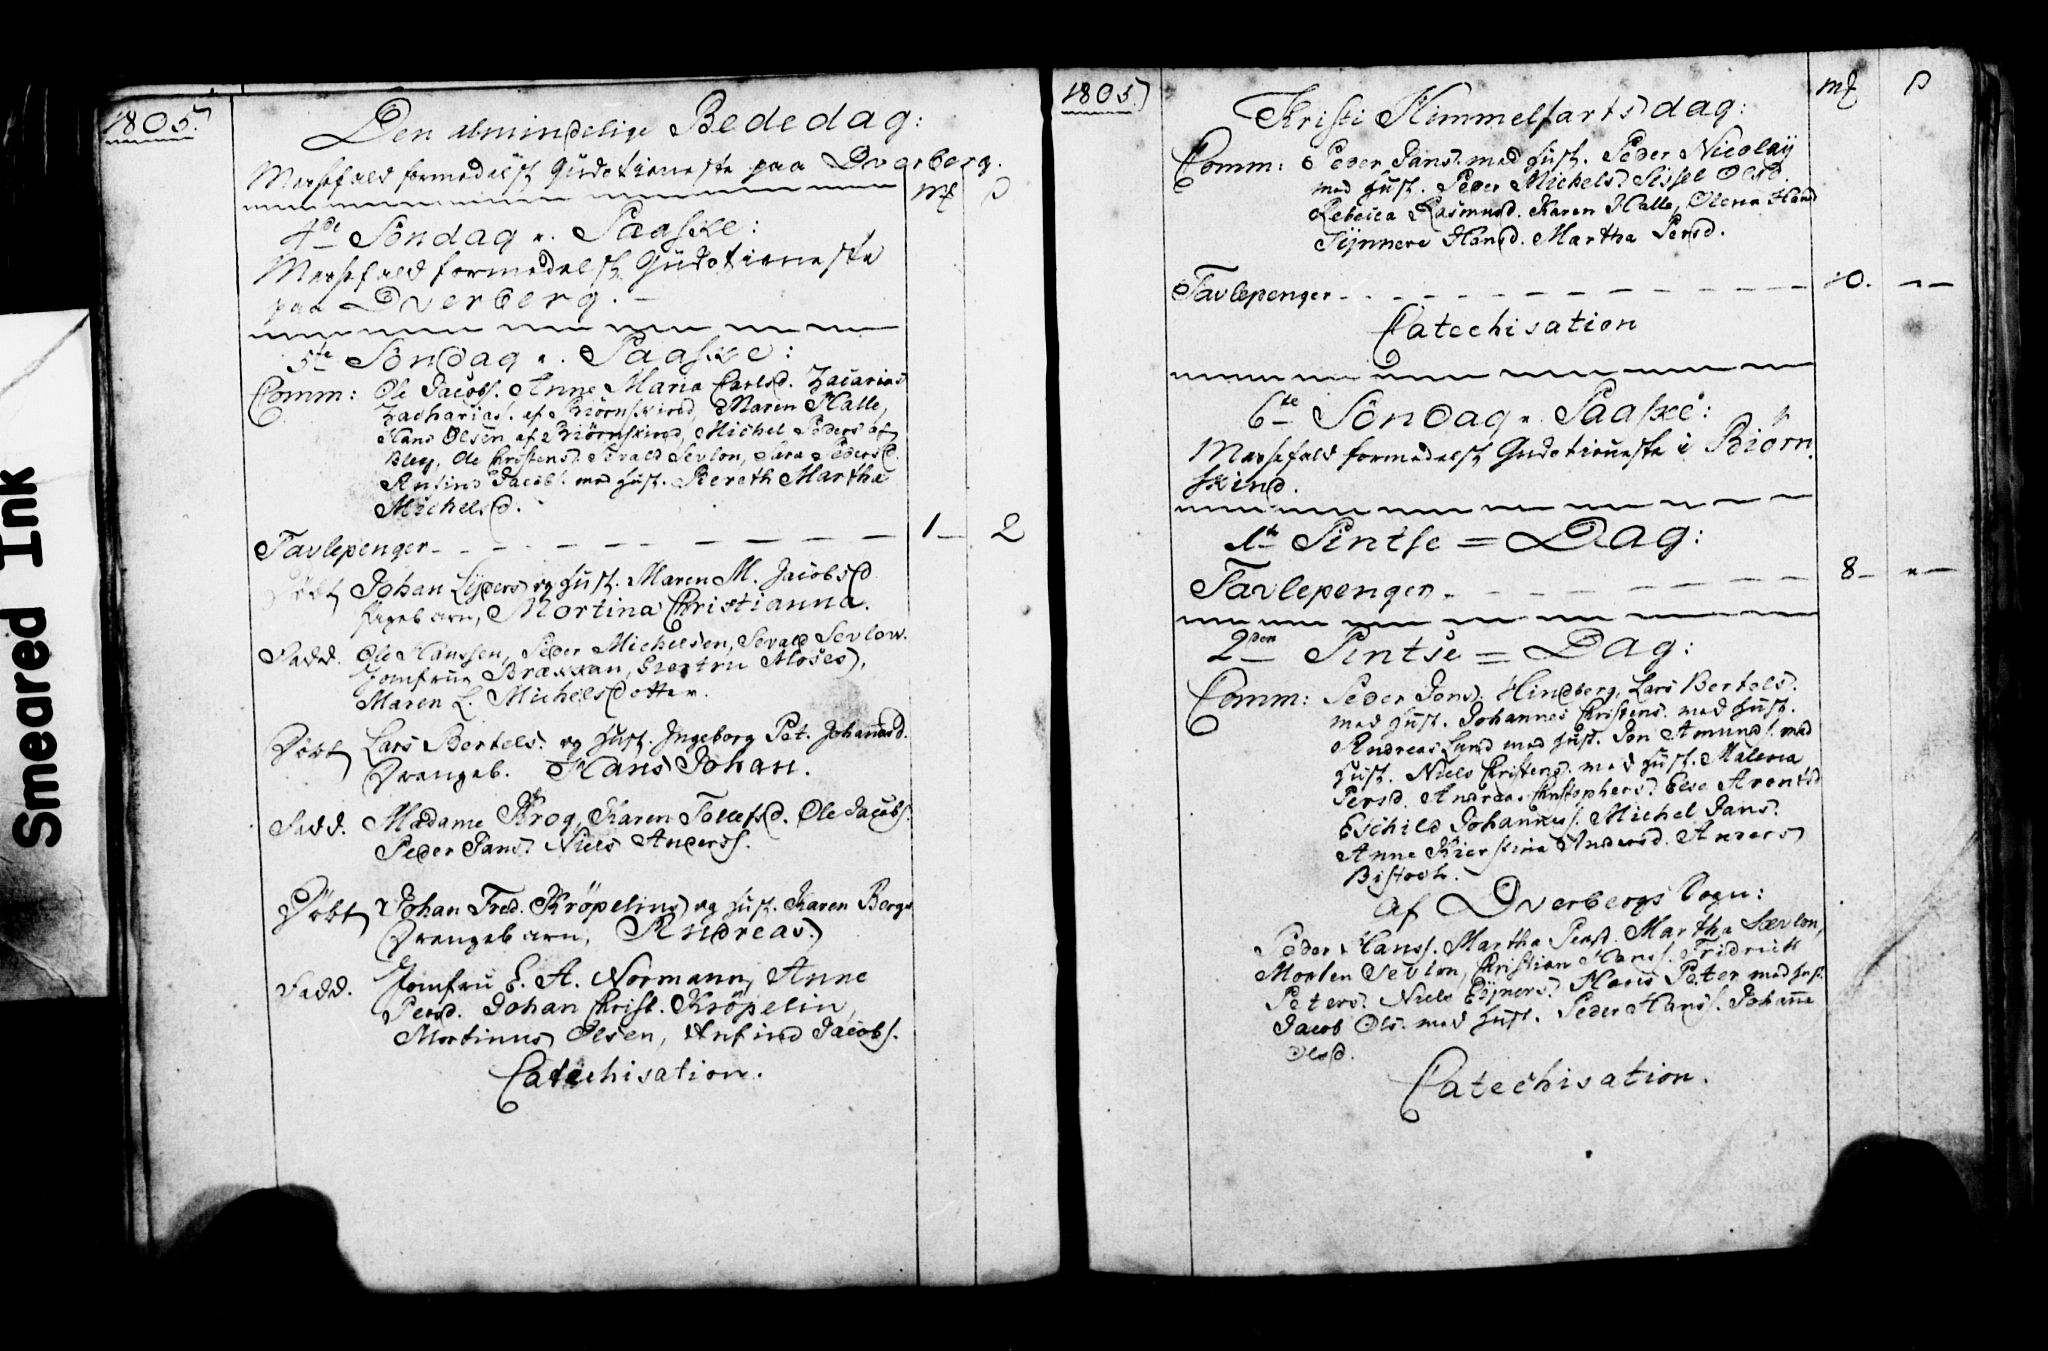 Smeared Ink
1805.
Den almindelige Bededag:
Messefald formedelst Gudstieneste paa Dverberg.
mk ß
4de Söndag n. Paaske:
Messefald formedelst Gudstieneste
paa Dverberg.
5te Söndag n. Paaske:
Comm: Ole Jacobs. Anne Maria Carlsd. Zacarias
Zacharias. af Biörnskind, Maren Halle,
Hans Olsen af Biörnskind, Michel Peders af
Bleg, Ole Christens. Sevald Sevlon, Sara Pedersd.
Anfind Jacobs. med Hust. Bereth Martha
Michelsd.
Tavlepenger 1 2
Döbt Johan Lyders og Hust. Maren M. Jacobsd
Pigebarn, Mortina Christianna.
Fadd. Ole Hanssen, Peder Michelsen, Sevald Sevlow.
Jomfrue Brækkan, Gientru Moses,
Maren L. Michelsdotter.
Döbt Lars Bertels. og Hust. Ingeborg Pet. Johannesd.
Drengeb. Hans Johan.
Fadd. Madame Krog, Karen Tollefsd. Ole Jacobs.
Peder Jans. Niels Anderss.
Döbt Johan Fred. Kröpelin og Hust. Karen Bergs
Drengebarn, Andreas.
Fadd. Jomfru E. A. Normann, Anne
Persd. Johan Christ. Kröpelin,
Mortinus Olsen, Anfind Jacobs.
Catechisation.
1805. mk ß
Kristi Himmelfarts dag:
Comm: Peder Jans. med Hust. Peder Nicolaÿ
med Hust. Peder Michels. Sissel Olsd.
Rebecca Rasmusd. Karen Halle, Olena Hansd
Synnere Hansd. Martha Persd.
Tavlepenger 10.
Catechisation
6te Söndag n. Paaske:
Messefald formedelst Gudstieneste i Biörn
skind.
1te Pintse = Dag:
Tavlepenger 8
2den Pintse = Dag:
Comm: Peder Jons. Hindberg, Lars Bertels.
med Hust. Johannes Christens. med Hust.
Andreas Lund med Hust. Jon Amunds. med
Hust. Niels Christens. med Hust. Malena
Persd. Andreas Christophers. Else Arentsd
Eschild Johannes. Michel Jans.
Anne Kierstine Andersd. Anders
Bistoch.
Af Dverbergs Sogn:
Peder Hanss. Martha Persd. Martha Sævlon,
Morten Sevlon, Christian Hanss. Fridrich
Peters. Niels Eyners. Hans Peter med Hust.
Jacob Ols. med Hust. Peder Hans. Johanne
Olsd.
Catechisation.